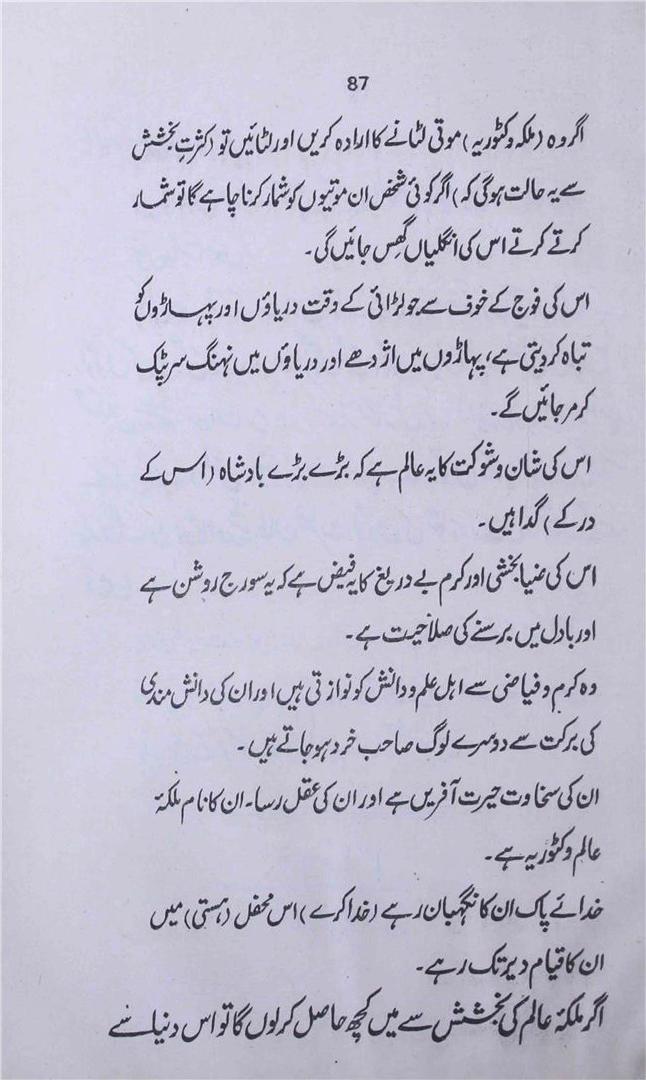 87
اگر وہ (ملکہ وکٹوریہ) موتی لٹانے کا ارادہ کریں اور لٹائیں تو (کثرتِ بخشش
سے یہ حالت ہوگی کہ) اگر کوئی شخص ان موتیوں کو شمار کرنا چاہے گا تو شمار
کرتے کرتے اس کی انگلیاں گھِس جائیں گی۔
اس کی فوج کے خوف سے جو لڑائی کے وقت دریاؤں اور پہاڑوں کو
تباہ کر دیتی ہے، پہاڑوں میں اژدھے اور دریاؤں میں نہنگ سر پٹک
کر مر جائیں گے۔
اس کی شان و شوکت کا یہ عالم ہے کہ بڑے بڑے بادشاہ (اس کے
در کے) گدا ہیں۔
اس کی ضیا بخشی اور کرم بے دریغ کا یہ فیض ہے کہ یہ سورج روشن ہے
اور بادل میں برسنے کی صلاحیت ہے۔
وہ کرم و فیاضی سے اہل علم و دانش کو نوازتی ہیں اور ان کی دانش مندی
کی برکت سے دوسرے لوگ صاحب خرد ہو جاتے ہیں۔
ان کی سخاوت حیرت آفریں ہے اور ان کی عقل رسا۔ ان کا نام ملکۂ
عالم وکٹوریہ ہے۔
خدائے پاک ان کا نگہبان رہے (خدا کرے) اس محفل (ہستی) میں
ان کا قیام دیر تک رہے۔
اگر ملکۂ عالم کی بخشش سے میں کچھ حاصل کر لوں گا تو اس دنیا سے